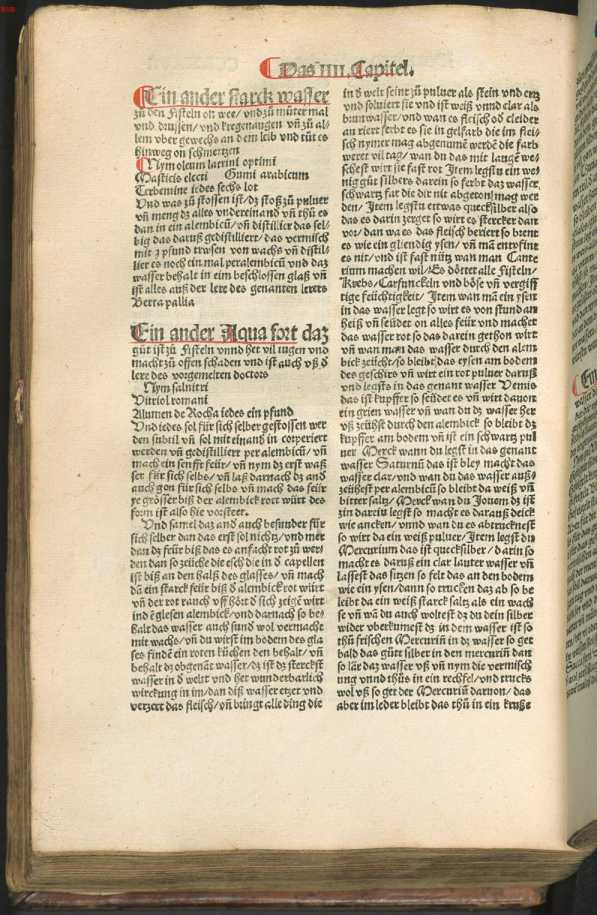 Das IIII. Capitel.
Ein ander starck wasser
zů den Fisteln on wee/ vnd zů můter mal
vnd drůsen/ vnd kregenaugen vñ zů al-
lem vber gewechs an dem leib vnd tůt es
hinweg on schmertzen
Nym oleum laterini optimi
Masticis electi Gumi arabicum
Terbentine iedes sechs lot
Vnd was zů stossen ist/ dz stoß zů puluer
vñ meng dz alles vnderein and vñ thů es
dan in ein alembicū/ vñ distillier das sel-
big das daruß gedistilliert/ das vermisch
mit z pfund von wachs vñ distil-
lier es noch ein mal per alembicū vnd daz
wasser behalt in eim beschlossen glaß vñ
ist alles auß der lere des genanten lerers
Berta pallia
Ein ander Aqua fort daz
gůt ist zů Fisteln vnnd het vil iugen vnd
macht zů offen schaden vnd ist auch vß d̄
lere des vorgemelten doctors
Nym salnitri
Vitriol romani
Alumen de Rocha iedes ein pfund
Vnd iedes sol für sich selber gestossen wer
den subtil vñ sol mit einand in corperiert
werden vñ gedistilliert per alembicū/ vñ
mach ein senfft feür/ vñ nym dz erst waß
ser für sich selbs/ vñ laß darnach dz and
auch gon für sich selbs vñ mach das feür
ye grösser biß der alembick rott würt des
form ist also hie vor steet.
Vnd samel daz and auch besunder für
sich selber dan das erst sol nichtz/ vnd mer
dan dz feür biß das es anfacht rot zů wer-
den dan so zeüche die esch die in d̄ capellen
ist biß an den halß des glasses/ vñ mach
dā ein starck feür biß d̄ alembick rot würt
vñ der rot rauch vff hört d̄ sich zeigē wirt
in dē glesen alembick/ vnd darnach so be-
halt das wasser auch sund wol vermacht
mit wachs/ vñ du wirst im bodem des gla
ses findē ein roten kůchen den behalt/ vñ
behalt dz obgenāt wasser/ dz ist dz sterckst
wasser in d̄ welt vnd het wunderbarlich
wirckung in im/ dan diß wasser etzet vnd
verzert das fleisch/ vñ bringt alle ding die
in d̄ welt seint zů puluer als stein vnd ertz
vnd soluiert sie vnd ist weiß vnnd clar als
brunwasser/ vnd wan es fleisch od̄ cleider
an riert ferbt es sie in gelfarb die im flei-
sch nymer mag abgenumē werdē die farb
weret vil tag/ wan du das mit lange we-
schest wirt sie fast rot Item legstu ein we-
nig gůt silbers darein so ferbt daz wasser
schwartz far die dir nit abgeton mag wer
den/ Item legstu ettwas quecksilber also
das es darin zerget so wirt es stercker dan
vor/ dan wa es das fleisch beriert so brent
es wie ein gliendig ysen/ vñ mā entpfint
es nit/ vnd ist fast nütz wan man Caute
rium machen wil/ Es dörret alle Fisteln/
Krebs/ Carfunckeln vnd böse vñ vergiff
tige feüchtigkeit/ Item wan mā ein ysen
in das wasser legt so wirt es von stund an
heiß vñ seüdet on alles feür vnd machet
das wasser rot so das darein gethon wirt
vñ wan man das wasser durch den alem
bick zeücht/ so bleibt das eysen am bodem
des geschirs vñ wirt ein rot puluer daruß
vnd legsts in das genant wasser Venus
das ist kupffer so seüdet es vñ wirt dauon
ein grien wasser vñ wan du dz wasser her
vß zeühst durch den alembick so bleibt dz
kupffer am bodem vñ ist ein schwartz pul
uer Merck wann du legst in das genant
wasser Saturnū das ist bley macht das
wasser clar/ vnd wan du das wasser auß-
zeühest per alembicū so bleibt da weiß vñ
bitter saltz/ Merck wan du Iouem dz ist
zin darein legst so macht es darauß deick
wie ancken/ vnnd wan du es abtrucknest
so wirt da ein weiß puluer/ Item legst du
Mercurium das ist quecksilber/ darin so
macht es daruß ein clar lauter wasser vñ
lassest das sitzen so felt das an den bodem
wie ein ysen/ dann so trucken daz ab so be
leibt da ein weiß starck saltz als ein wach
se vñ wā du auch woltest dz du dein silber
wider vberkumest dz in dem wasser ist so
thů frischen Mercuriū in dz wasser so get
bald das gůt silber in den mercuriū dan
so lär daz wasser vß vñ nym die vermisch
ung vnnd thůs in ein rechfel/ vnd trucks
wol vß so get der Mercuriū daruon/ das
aber im leder bleibt das thů in ein kruße